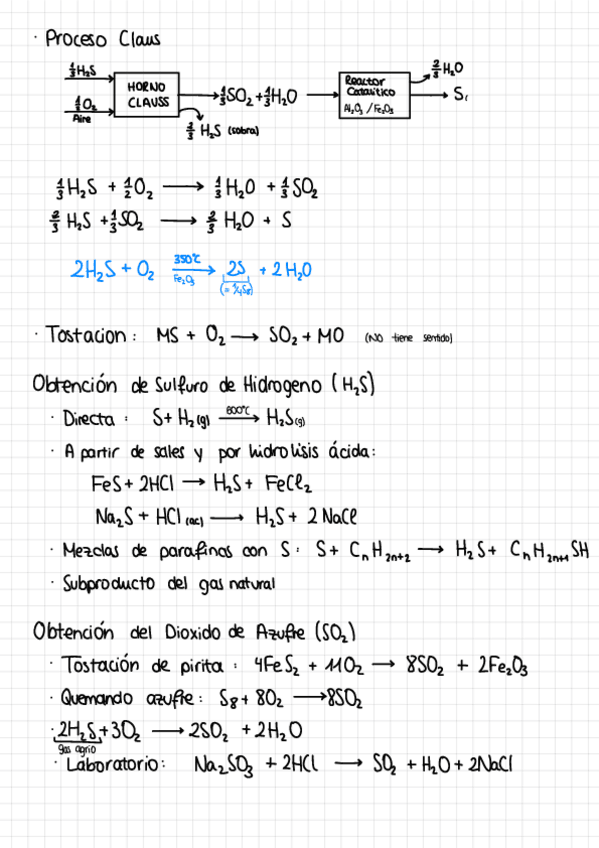 · Proceso Claus
⅓H₂S
½O₂
Aire
HORNO
CLAUSS
⅓SO₂+⅓H₂O
⅔ H₂S (sobra)
Reactor
Catalitico
Al₂O₃ / Fe₂O₃
⅔H₂O
S
⅓H₂S + ½O₂ ⟶ ⅓H₂O + ⅓SO₂
⅔ H₂S + ⅓SO₂ ⟶ ⅔ H₂O + S
2H₂S + O₂ 350℃ ⟶ Fe₂O₃ 2S + 2H₂O
(= ¼S₈)
· Tostacion: MS + O₂ ⟶ SO₂ + MO (NO tiene sentido)
Obtención de Sulfuro de Hidrogeno (H₂S)
· Directa: S + H₂(g) 600℃ ⟶ H₂S(g)
· A partir de sales y por hidrolisis ácida:
FeS + 2HCl ⟶ H₂S + FeCl₂
Na₂S + HCl (ac) ⟶ H₂S + 2 NaCl
· Mezclas de parafinas con S: S + CₙH₂ₙ₊₂ ⟶ H₂S + CₙH₂ₙ₊₁SH
· Subproducto del gas natural
Obtención del Dioxido de Azufre (SO₂)
· Tostación de pirita: 4FeS₂ + 11O₂ ⟶ 8SO₂ + 2Fe₂O₃
· Quemando azufre: S₈ + 8O₂ ⟶ 8SO₂
· 2H₂S + 3O₂ ⟶ 2SO₂ + 2H₂O
gas agrio
· Laboratorio: Na₂SO₃ + 2HCl ⟶ SO₂ + H₂O + 2NaCl